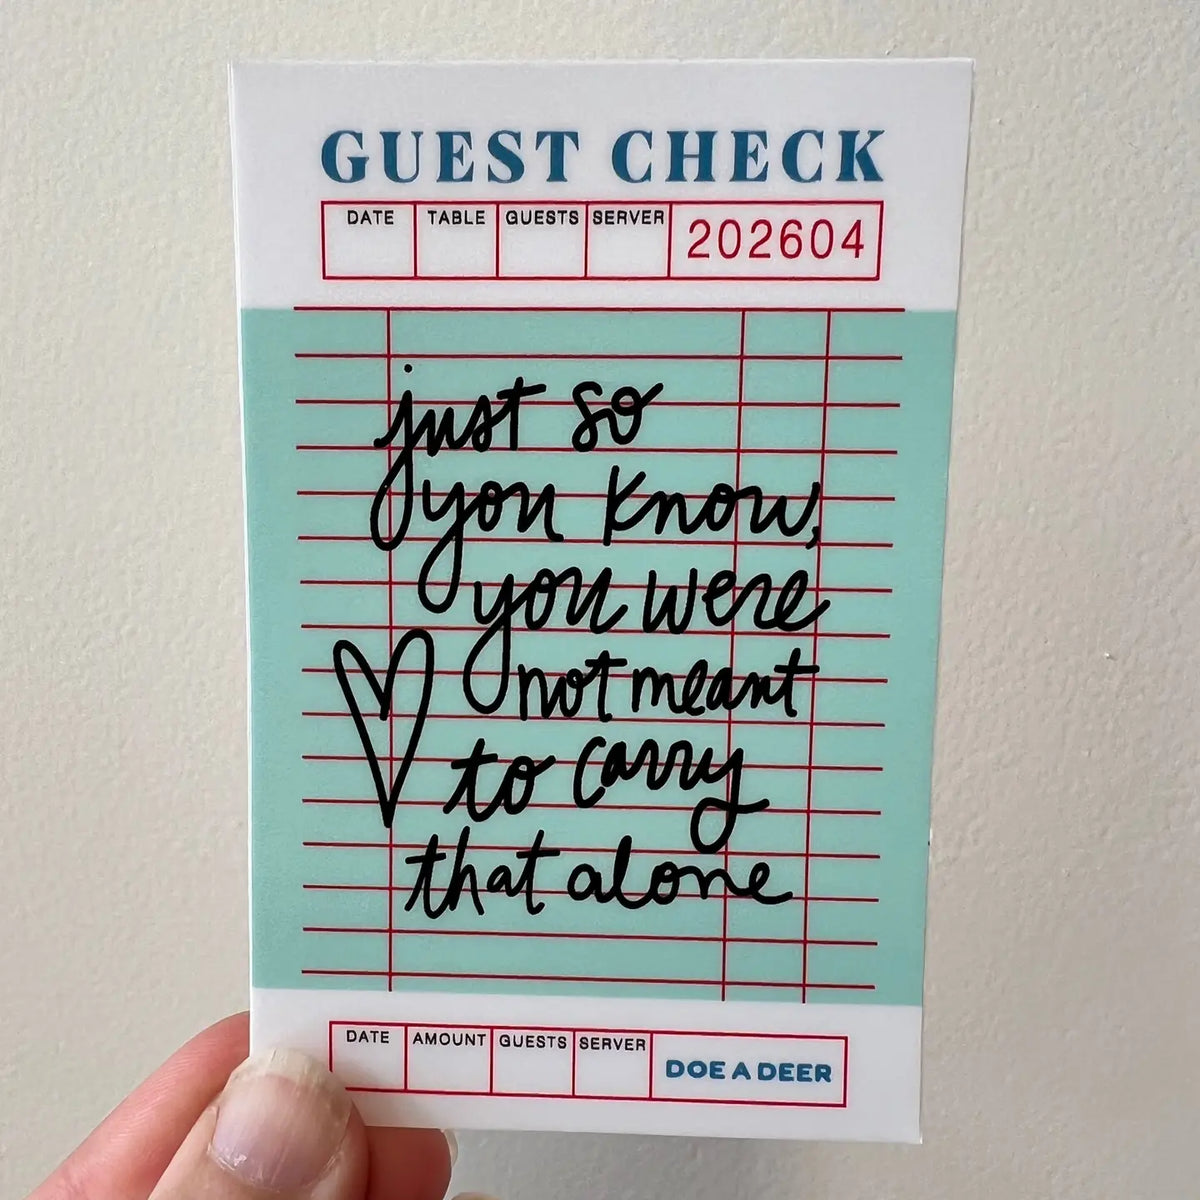 GUEST CHECK
DATE TABLE GUESTS SERVER 202604
just so
you know,
you were
not meant
to carry
that alone
DATE AMOUNT GUESTS SERVER DOE A DEER